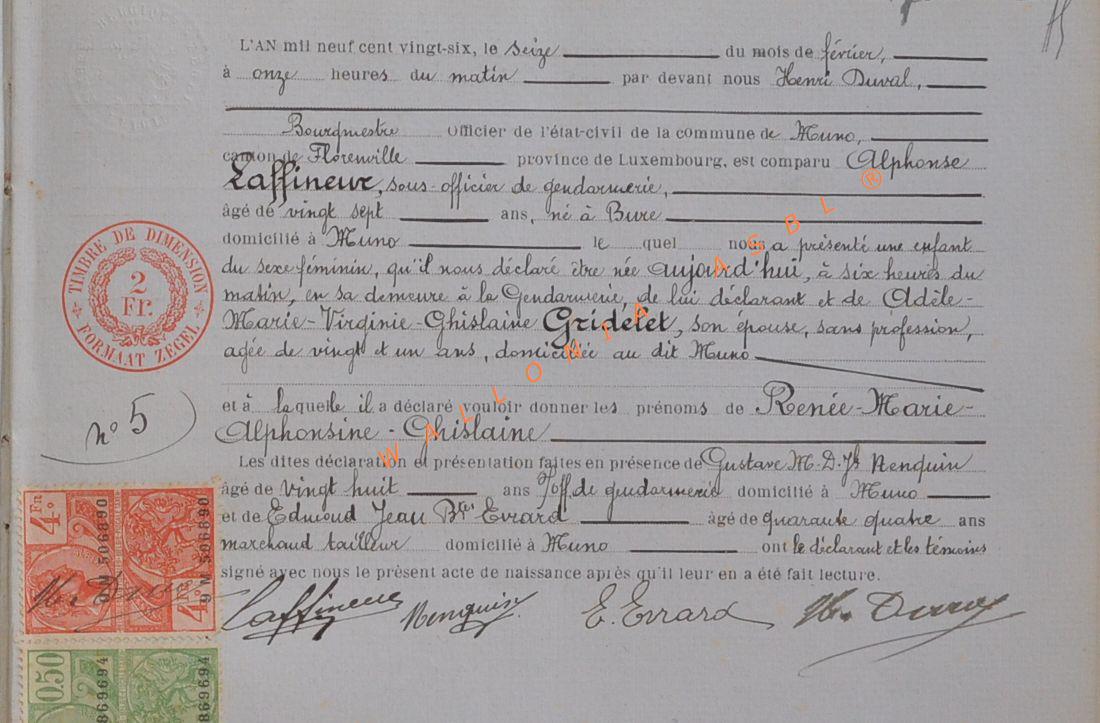 L'AN mil neuf cent vingt-six, le seize du mois de février,
à onze heures du matin par devant nous Henri Duval,
Bourgmestre Officier de l'état-civil de la commune de Muno,
canton de Florenville province de Luxembourg, est comparu Alphonse
Laffineur, sous-officier de gendarmerie,
âgé de vingt sept ans, né à Bure
domicilié à Muno le quel nous a présenté une enfant
du sexe féminin, qu'il nous déclaré être née aujourd'hui, à six heures du
matin, en sa demeure à la Gendarmerie, de lui déclarant et de Adèle-
Marie-Virginie-Ghislaine Gridelet, son épouse, sans profession,
agée de vingt et un ans, domiciliée au dit Muno
et à laquelle il a déclaré vouloir donner les prénoms de Renée-Marie-
Alphonsine-Ghislaine
Les dites déclaration et présentation faites en présence de Gustave M. D. Jh Renquin
âgé de vingt huit ans s/off de gendarmerie domicilié à Muno
et de Edmond Jean Bte Evrard âgé de quarante quatre ans
marchand tailleur domicilié à Muno ont le déclarant et les témoins
signé avec nous le présent acte de naissance après qu'il leur en a été fait lecture.
Laffineur Renquin E. Evrard Hri Duval
TIMBRE DE DIMENSION
2
Fr.
FORMAAT ZEGEL
n° 5
4 Fr
9 M 506890
9 M 506890
4
0.50
869694
869694
WALLONIA ASBL ®